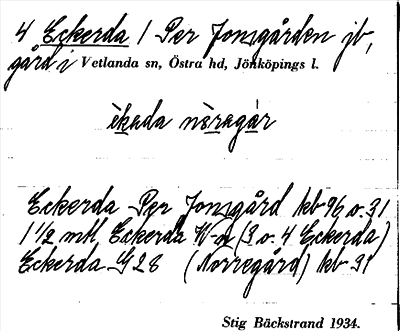 4 Eckerda 1 Per Jonsgården jb,
gård i Vetlanda sn, Östra hd, Jönköpings l.
èkada nöragàr
Eckerda Per Jonsgård kb 96 o. 31
1 1/2 mtl Eckerda (3 o. 4 Eckerda)
Eckerda G 28 (Norregård) kb 31
Stig Bäckstrand 1934.